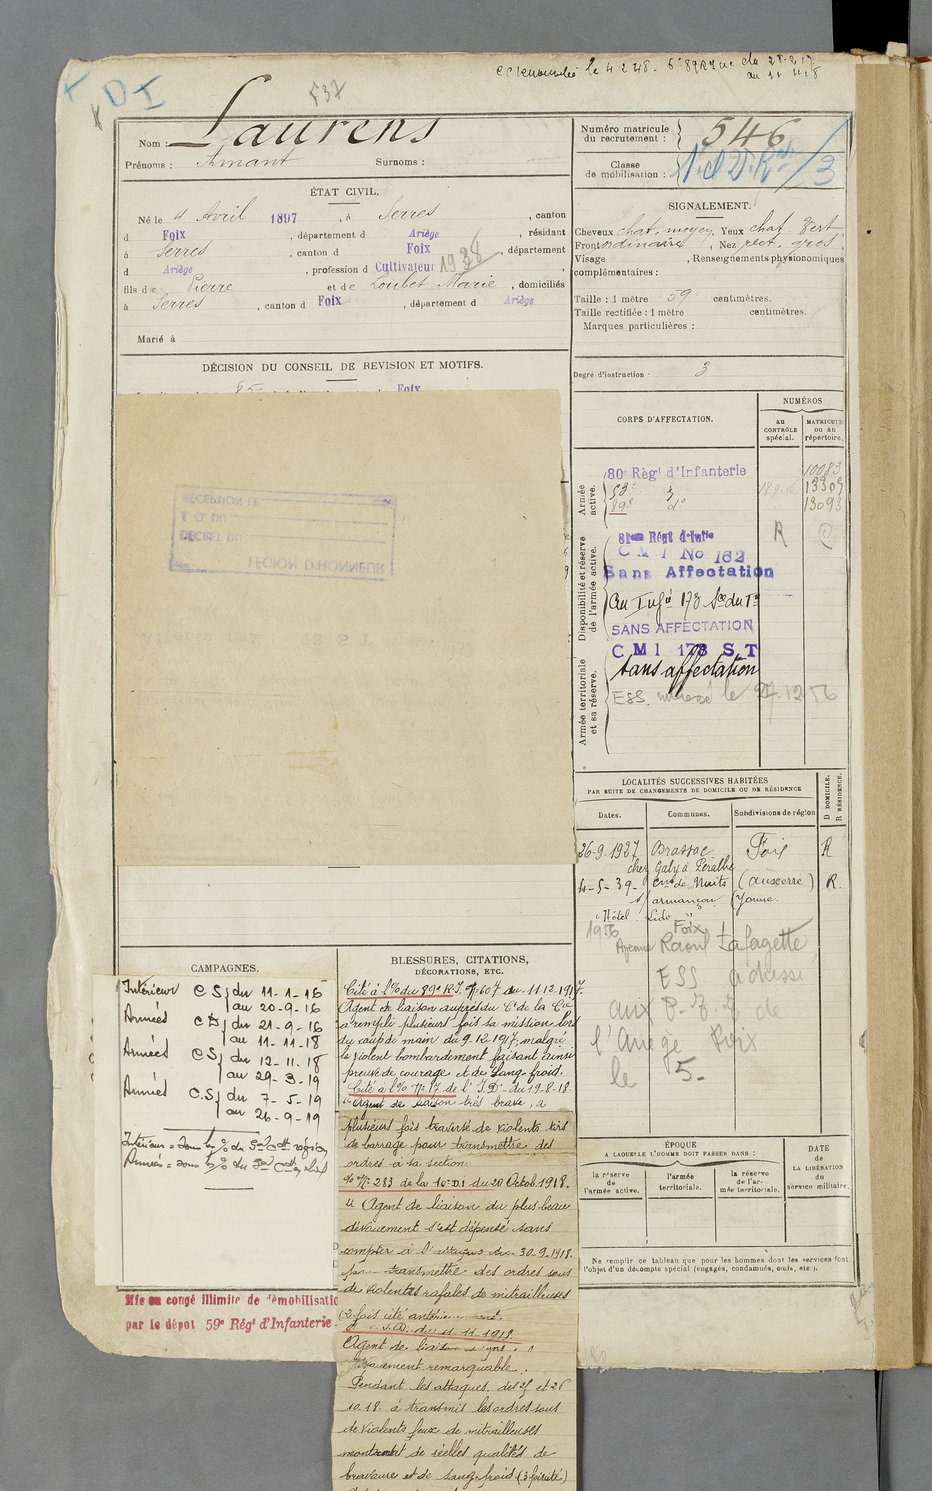 le 4 2 48. 6e 89 RI
DI
537
Nom : Laurens
Prénoms : Amant Surnoms :
Numéro matricule du recrutement : 546
Classe de mobilisation : /3
ÉTAT CIVIL.
Né le 4 Avril 1897, à Serres, canton
d Foix, département d Ariège, résidant
à Serres, canton d Foix, département
d Ariège, profession d Cultivateur 1938
fils de Pierre et de Loubet Marie, domiciliés
à Serres, canton d Foix, département d Ariège
Marié à
SIGNALEMENT.
Cheveux chat. moyen, Yeux chat. Vert
Front ordinaire, Nez rect. gros
Visage , Renseignements physionomiques
complémentaires :
Taille : 1 mètre 59 centimètres.
Taille rectifiée : 1 mètre centimètres.
Marques particulières :
Degré d'instruction : 3
DÉCISION DU CONSEIL DE REVISION ET MOTIFS.
Foix
LÉGION D'HONNEUR
DÉCRET DU
J. O. DU
RÉCEPTION LE
CORPS D'AFFECTATION.
NUMÉROS
au CONTRÔLE spécial.
MATRICULE ou au répertoire.
Armée active.
80e Régt d'Infanterie 10083
53e d° 13309
89e d° 13093
Disponibilité et réserve de l'armée active.
81eme Régt d'Infie R C
C M I No 162
Sans Affectation
SANS AFFECTATION
C M I 178 S T
Armée territoriale et sa réserve.
Sans affectation
ESS le 27.12 56
LOCALITÉS SUCCESSIVES HABITÉES
PAR SUITE DE CHANGEMENTS DE DOMICILE OU DE RÉSIDENCE
Dates. Communes. Subdivisions de région D DOMICILE. R RÉSIDENCE.
26-9-1927 Brassac Foix R
chez Galy à Peralbe
4-5-39- Cne de Nuits (Auxerre) R.
s/ armançon (Yonne.
"Hôtel Lido"
1956 Foix
Avenue Raoul Lafagette
ESS adressé
aux P.T.T de
l'Ariège Foix
le 5-
CAMPAGNES.
Intérieur C S du 11-1-16
au 20-9-16
Armées C D du 21-9-16
au 11-11-18
Armées C S du 12-11-18
au 29-3-19
Armées C.S du 7-5-19
au 26-9-19
Mis en congé illimité de démobilisatio
par le dépot 59e Rég' d'Infanterie
BLESSURES, CITATIONS,
DÉCORATIONS, ETC.
Cité à l'O/ du 89e RI. N° 607 du 11.12.1917.
Agent de liaison auprès du Ct de la Cie
a rempli plusieurs fois sa mission lors
du coup de main du 9-12-1917, malgré
le violent bombardement faisant ainsi
preuve de courage et de sang-froid.
Cité à l'O/ N° 17 de l'I.D. du 19-8-18.
"Agent de liaison très brave, a
plusieurs fois traversé de violents tirs
de barrage pour transmettre des
ordres à sa section.
O/ N° 283 de la 10e DI du 20 Octob. 1918.
"Agent de liaison du plus beau
dévouement s'est dépensé sans
compter à l'attaque du 30-9-1918
pour transmettre des ordres sous
de violentes rafales de mitrailleuses
(2 fois cité
I.D. du 11 11 1918
Agent de liaison
remarquable.
Pendant les attaques des 25 et 26
10.18. a transmis les ordres sous
de violents feux de mitrailleuses
montrant de réelles qualités de
bravoure et de sang froid (3 fois cité)
ÉPOQUE
A LAQUELLE L'HOMME DOIT PASSER DANS :
la réserve de l'armée active.
l'armée territoriale.
la réserve de l'armée territoriale.
DATE de LA LIBÉRATION du service militaire.
Ne remplir ce tableau que pour les hommes dont les services font
l'objet d'un décompte spécial (engagés, condamnés, omis, etc.).